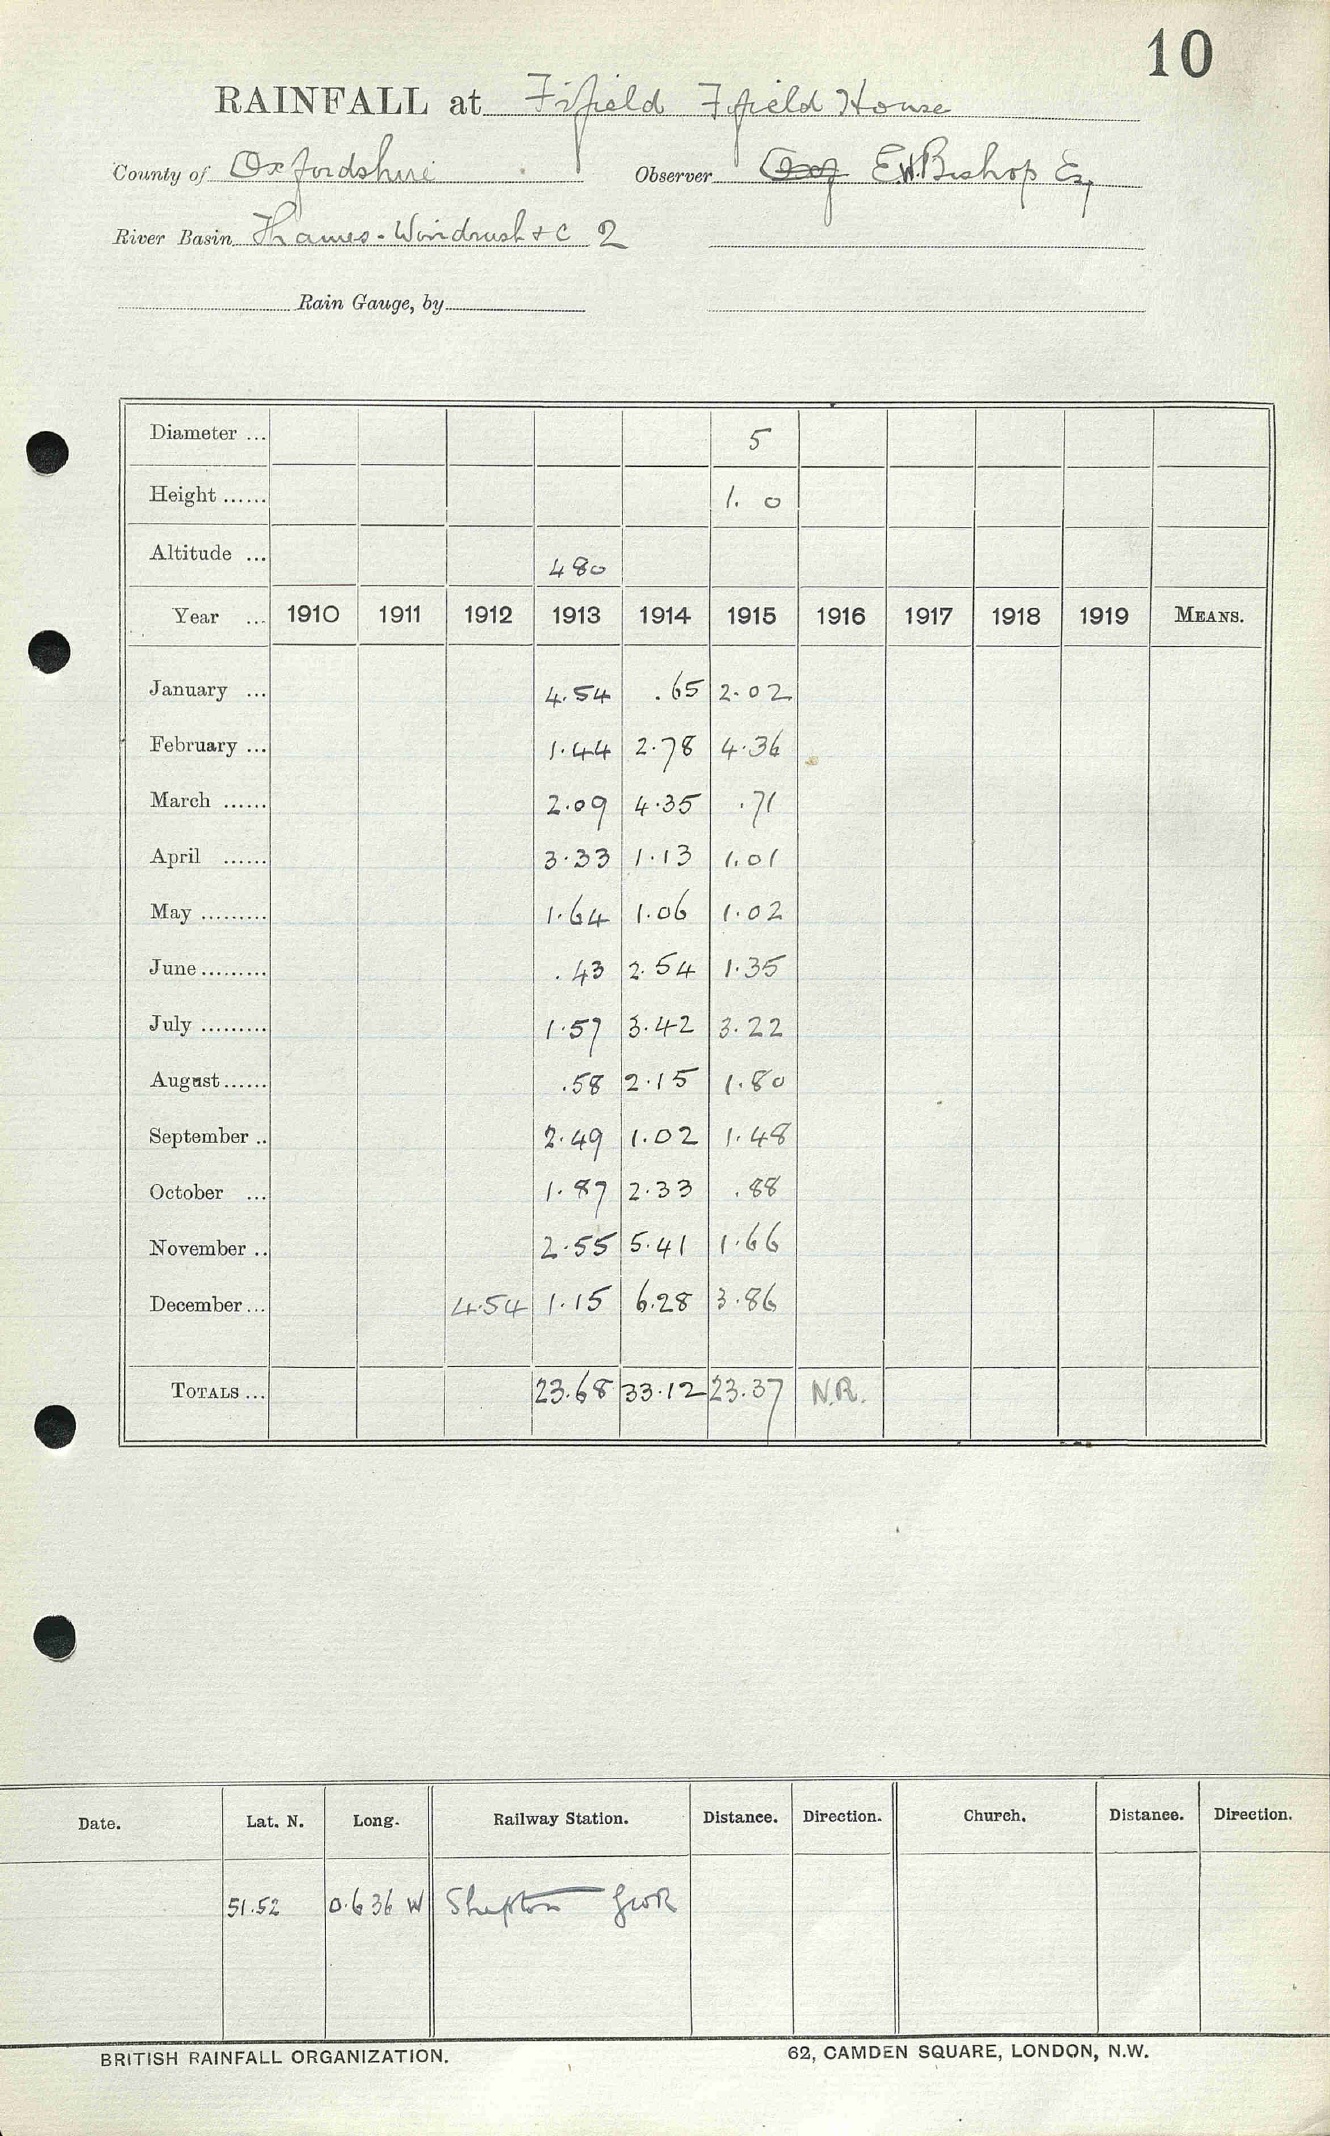 10
RAINFALL at Fifield Fifield House
County of Oxfordshire Observer E.W. Bishop Esq
River Basin Thames - Windrush &c 2
Rain Gauge, by
Diameter ... 5
Height ...... 1. 0
Altitude ... 480
Year ... 1910 1911 1912 1913 1914 1915 1916 1917 1918 1919 MEANS.
January ... 4.54 .65 2.02
February ... 1.44 2.78 4.36
March ...... 2.09 4.35 .71
April ...... 3.33 1.13 1.01
May ......... 1.64 1.06 1.02
June ......... .43 2.54 1.35
July ......... 1.57 3.42 3.22
August ...... .58 2.15 1.80
September .. 2.49 1.02 1.48
October ... 1.87 2.33 .88
November .. 2.55 5.41 1.66
December ... 4.54 1.15 6.28 3.86
TOTALS ... 23.68 33.12 23.37 N.R.
Date. Lat. N. Long. Railway Station. Distance. Direction. Church. Distance. Direction.
51.52 0.636 W Shipton GWR
BRITISH RAINFALL ORGANIZATION. 62, CAMDEN SQUARE, LONDON, N.W.